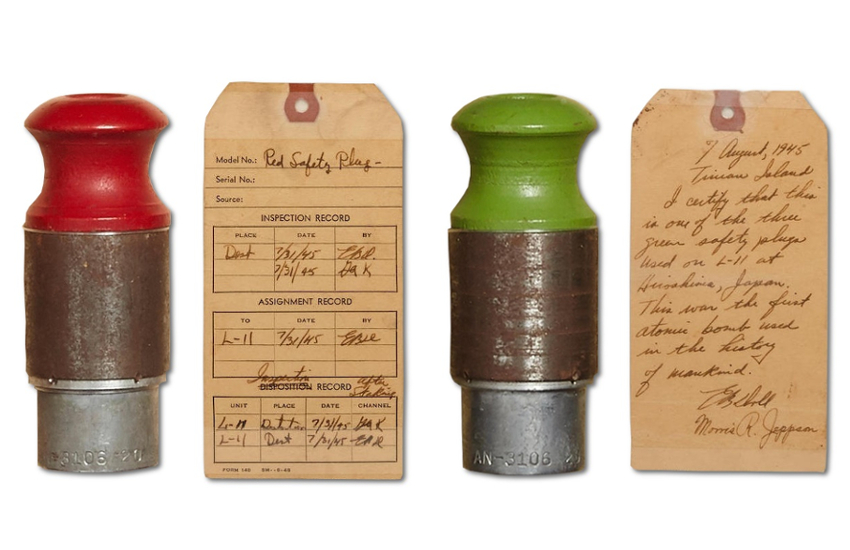 3106-20
Model No.: Red Safety Plug-
Serial No.:
Source:
INSPECTION RECORD
PLACE DATE BY
Dest 7/31/45
7/31/45
ASSIGNMENT RECORD
TO DATE BY
L-11 7/31/45
Inspection After
DISPOSITION RECORD Staking
UNIT PLACE DATE CHANNEL
L-11 7/31/45
L-11 Dest 7/31/45
FORM 140
AN-3106
7 August, 1945
Tinian Island
I certify that this
is one of the three
green safety plugs
used on L-11 at
Hiroshima, Japan.
This was the first
atomic bomb used
in the history
of mankind.
Morris R. Jeppson